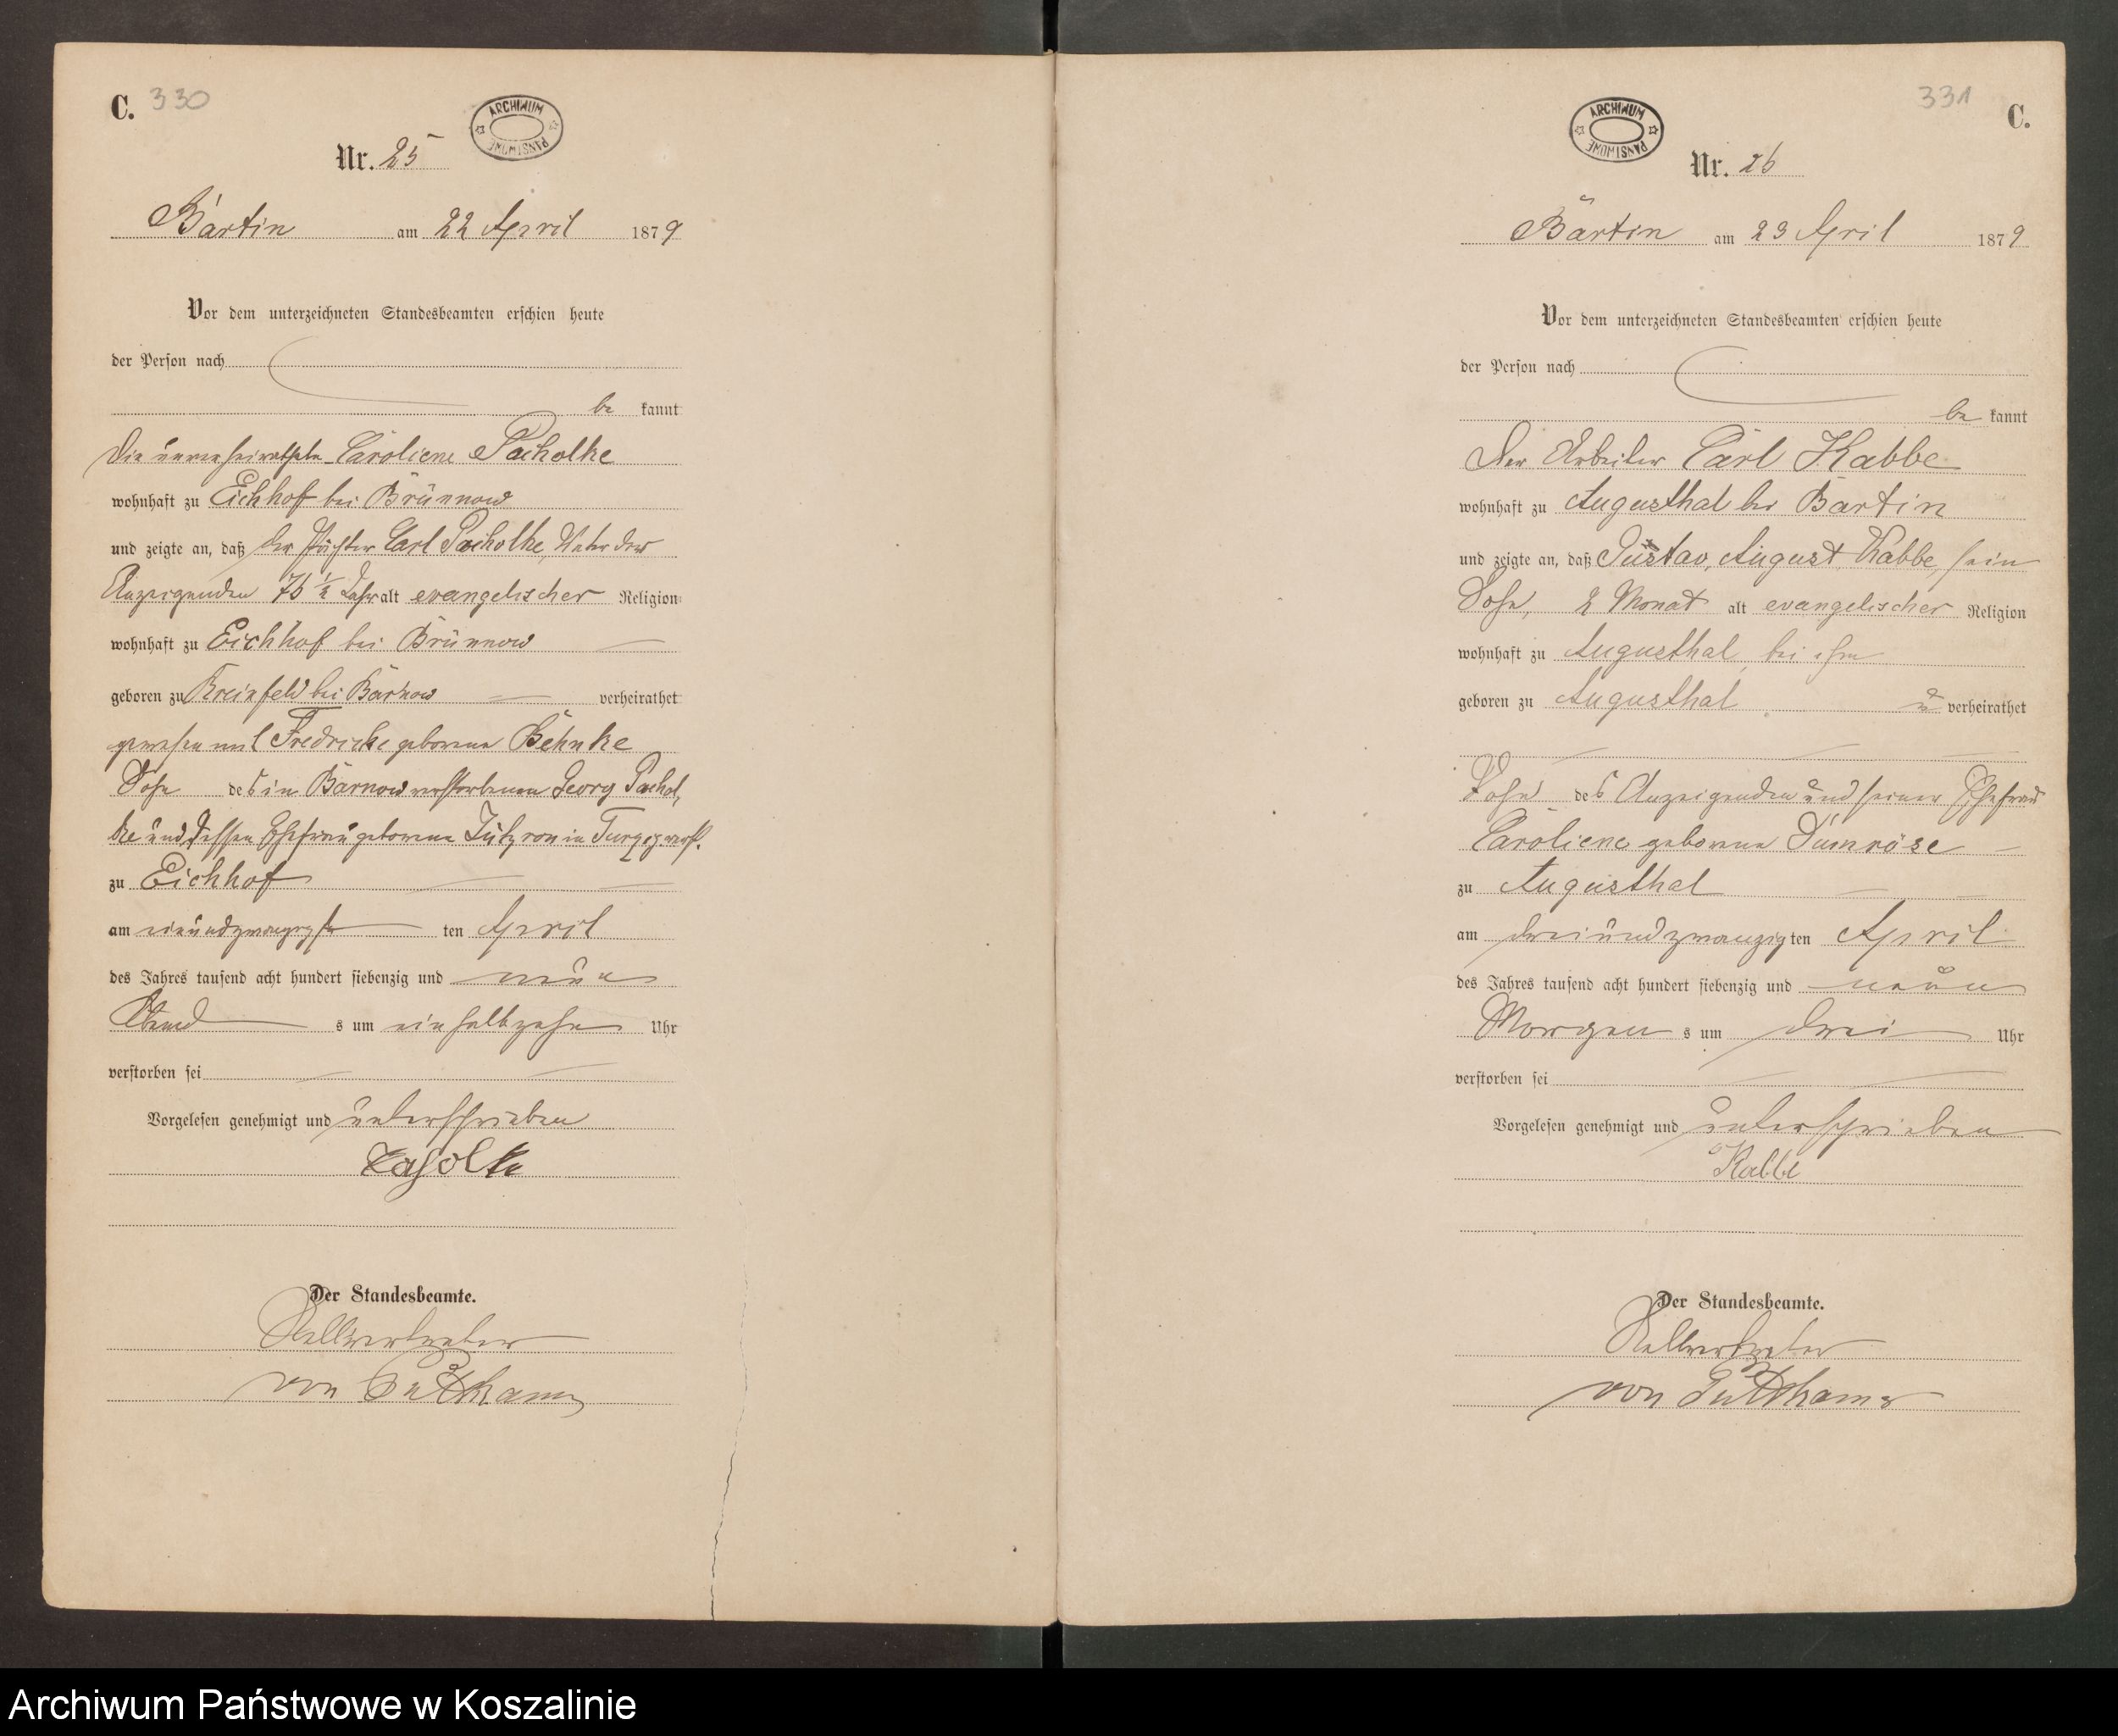 C. 330
ARCHIWUM PAŃSTWOWE
Nr. 25
Bartin am 22 April 1879
Vor dem unterzeichneten Standesbeamten erschien heute
der Person nach
be kannt
die unverheirathete Caroliene Pacholke
wohnhaft zu Eichhof bei Brünnow
und zeigte an, daß der Pächter Carl Pacholke, Vater der
Anzeigenden 76 ½ Jahr alt evangelischer Religion
wohnhaft zu Eichhof bei Brünnow
geboren zu bei Barnow verheirathet
gewesen mit Fredricke geborene Behnke
Sohn des in Barnow verstorbenen Georg Pachol,
ke und dessen Ehefrau geborene in
zu Eichhof
am einundzwanzigste ten April
des Jahres tausend acht hundert siebenzig und neun
Abend s um einhalbzehn Uhr
verstorben sei
Vorgelesen genehmigt und unterschrieben
Der Standesbeamte.
Stellvertreter
von Puttkamer
331 C.
ARCHIWUM PAŃSTWOWE
Nr. 26
Bartin am 23 April 1879
Vor dem unterzeichneten Standesbeamten erschien heute
der Person nach
be kannt
Der Arbeiter Carl Kabbe
wohnhaft zu Augusthal bei Bartin
und zeigte an, daß Gustav, August, Kabbe, sein
Sohn, 2 Monat alt evangelischer Religion
wohnhaft zu Augusthal, bei ihm
geboren zu Augusthal un verheirathet
Sohn des Anzeigenden und seiner Ehefrau
Caroliene geborene Dumröse
zu Augusthal
am dreiundzwanzig ten April
des Jahres tausend acht hundert siebenzig und neun
Morgen s um drei Uhr
verstorben sei
Vorgelesen genehmigt und unterschrieben
Kabbe
Der Standesbeamte.
Stellvertreter
von Puttkamer
Archiwum Państwowe w Koszalinie